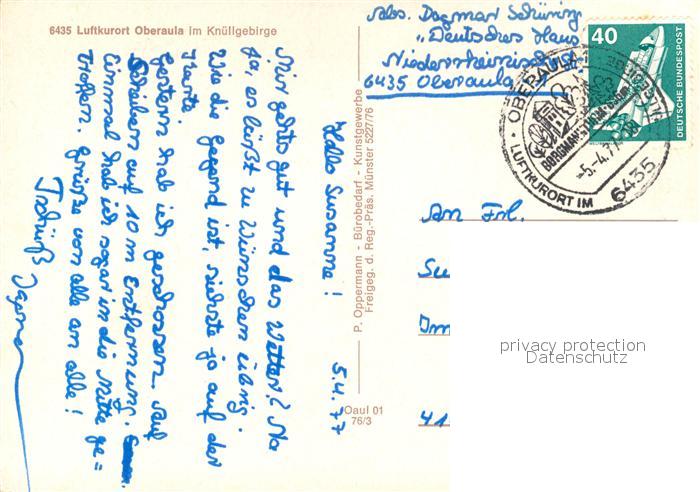 6435 Luftkurort Oberaula im Knüllgebirge
Hallo Susanne! 5.4.77
Mir gehts gut und das Wetter? Na
ja, es läßt zu Wünschen übrig.
Wie die Gegend ist, siehste ja auf der
Karte.
Gestern hab ich geschossen. Auf
Scheiben auf 10 m Entfernung.
Einmal hab ich sogar in die Mitte ge=
troffen. Grüße von alle an alle!
Tschüß Dagmar
P. Oppermann - Bürobedarf - Kunstgewerbe
Freigeg. d. Reg.-Präs. Münster 5227/76
Oaul 01
76/3
Abs. Dagmar Schüring
"Deutsches Haus
6435 Oberaula
40
DEUTSCHE BUNDESPOST
OBERAULA
BORGMANNS
-5.-4.77
LUFTKURORT IM
6435
An Frl.
Su
Im
41
privacy protection
Datenschutz